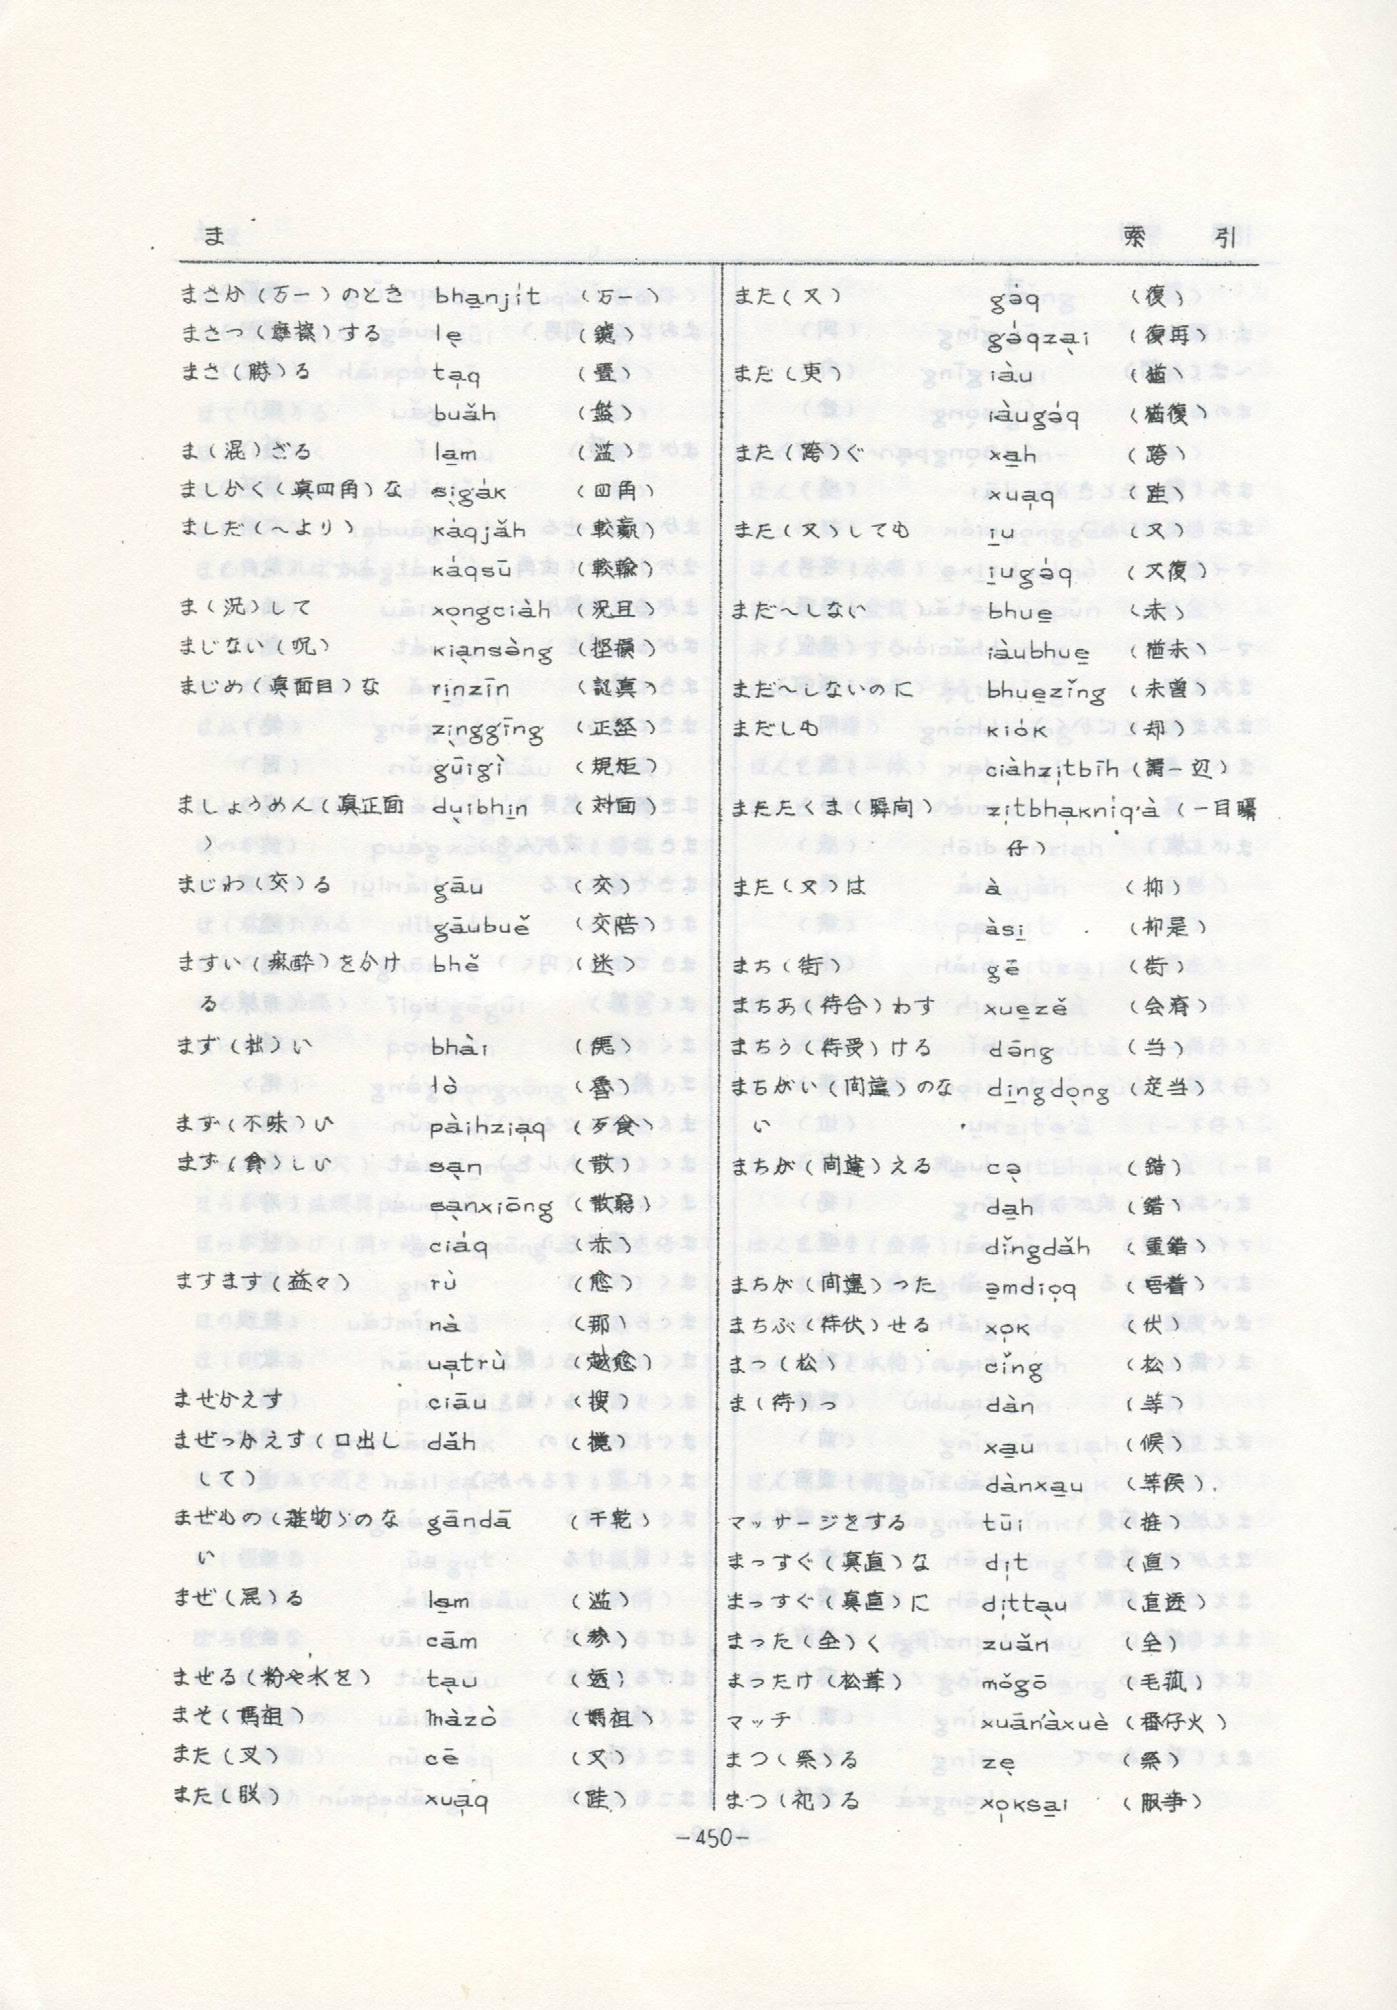 ま
索 引
まさか(万一)のとき bha̱njı̍t (万一)
まさつ(摩擦)する lẹ (鑢)
まさ(勝)る tạq (疊)
buǎh (盤)
ま(混)ざる la̱m (滥)
ましかく(真四角)な sịga̍k (四角)
ましだ(〜より) ka̍qjǎh (較贏)
ka̍qsū (較輸)
ま(況)して xọngciàh (況且)
まじない(呪) kịansə̀ng
まじめ(真面目)な ri̱nzīn (認真)
zịnggīng (正経)
gūigì (規矩)
ましょうめん(真正面 dụibhi̱n (対面)
)
まじわ(交)る gāu (交)
gāubuě (交陪)
ますい(麻酔)をかけ bhě (迷)
る
まず(拙)い bhài
lò (魯)
まず(不味)い pàihzịaq (歹食)
まず(貧)しい sạn (散)
sạnxiōng (散窮)
cia̍q (赤)
ますます(益々) rù (愈)
nà (那)
uạtrù (越愈)
ませかえす ciāu (搜)
まぜっかえす(口出し dǎh (搅)
して)
まぜもの(雑物)のな gāndā (干乾)
い
まぜ(混)る la̱m (滥)
cām (参)
まぜる(粉や水を) tạu (透)
まそ(媽祖) màzò (媽祖)
また(叉) cē (叉)
また(股) xuạq
また(又) gə̍q (復)
gə̍qzại (復再)
まだ(未) iàu (猶)
iàugə̍q (猶復)
また(跨)ぐ xa̱h (跨)
xuạq
また(又)しても i̱u (又)
i̱ugə̍q (又復)
まだ〜しない bhue̱ (未)
iàubhue̱ (猶未)
まだ〜しないのに bhue̱zǐng (未曾)
まだしも kio̍k (却)
ciàhzịtbīh (請一辺)
またたくま(瞬間) zịtbhạkni̍q'à (一目𥍉
仔)
また(又)は à (抑)
àsi̱ (抑是)
まち(街) gē (街)
まちあ(待合)わす xue̱zě (会斉)
まちう(待受)ける də̄ng (当)
まちがい(間違)のな di̱ngdọng (定当)
い
まちが(間違)える cə̣ (錯)
da̱h (錯)
dǐngdǎh (重錯)
まちが(間違)った ə̱mdiọq (毋着)
まちぶ(待伏)せる xọk (伏)
まつ(松) cǐng (松)
ま(待)つ dàn (等)
xa̱u (候)
dànxa̱u (等候)
マッサージをする tūi (推)
まっすぐ(真直)な dịt (直)
まっすぐ(真直)に dịttạu (直透)
まった(全)く zuǎn (全)
まったけ(松茸) mǒgō (毛菰)
マッチ xuān'àxuè (番仔火)
まつ(祭)る zẹ (祭)
まつ(祀)る xọksa̱i (服事)
-450-